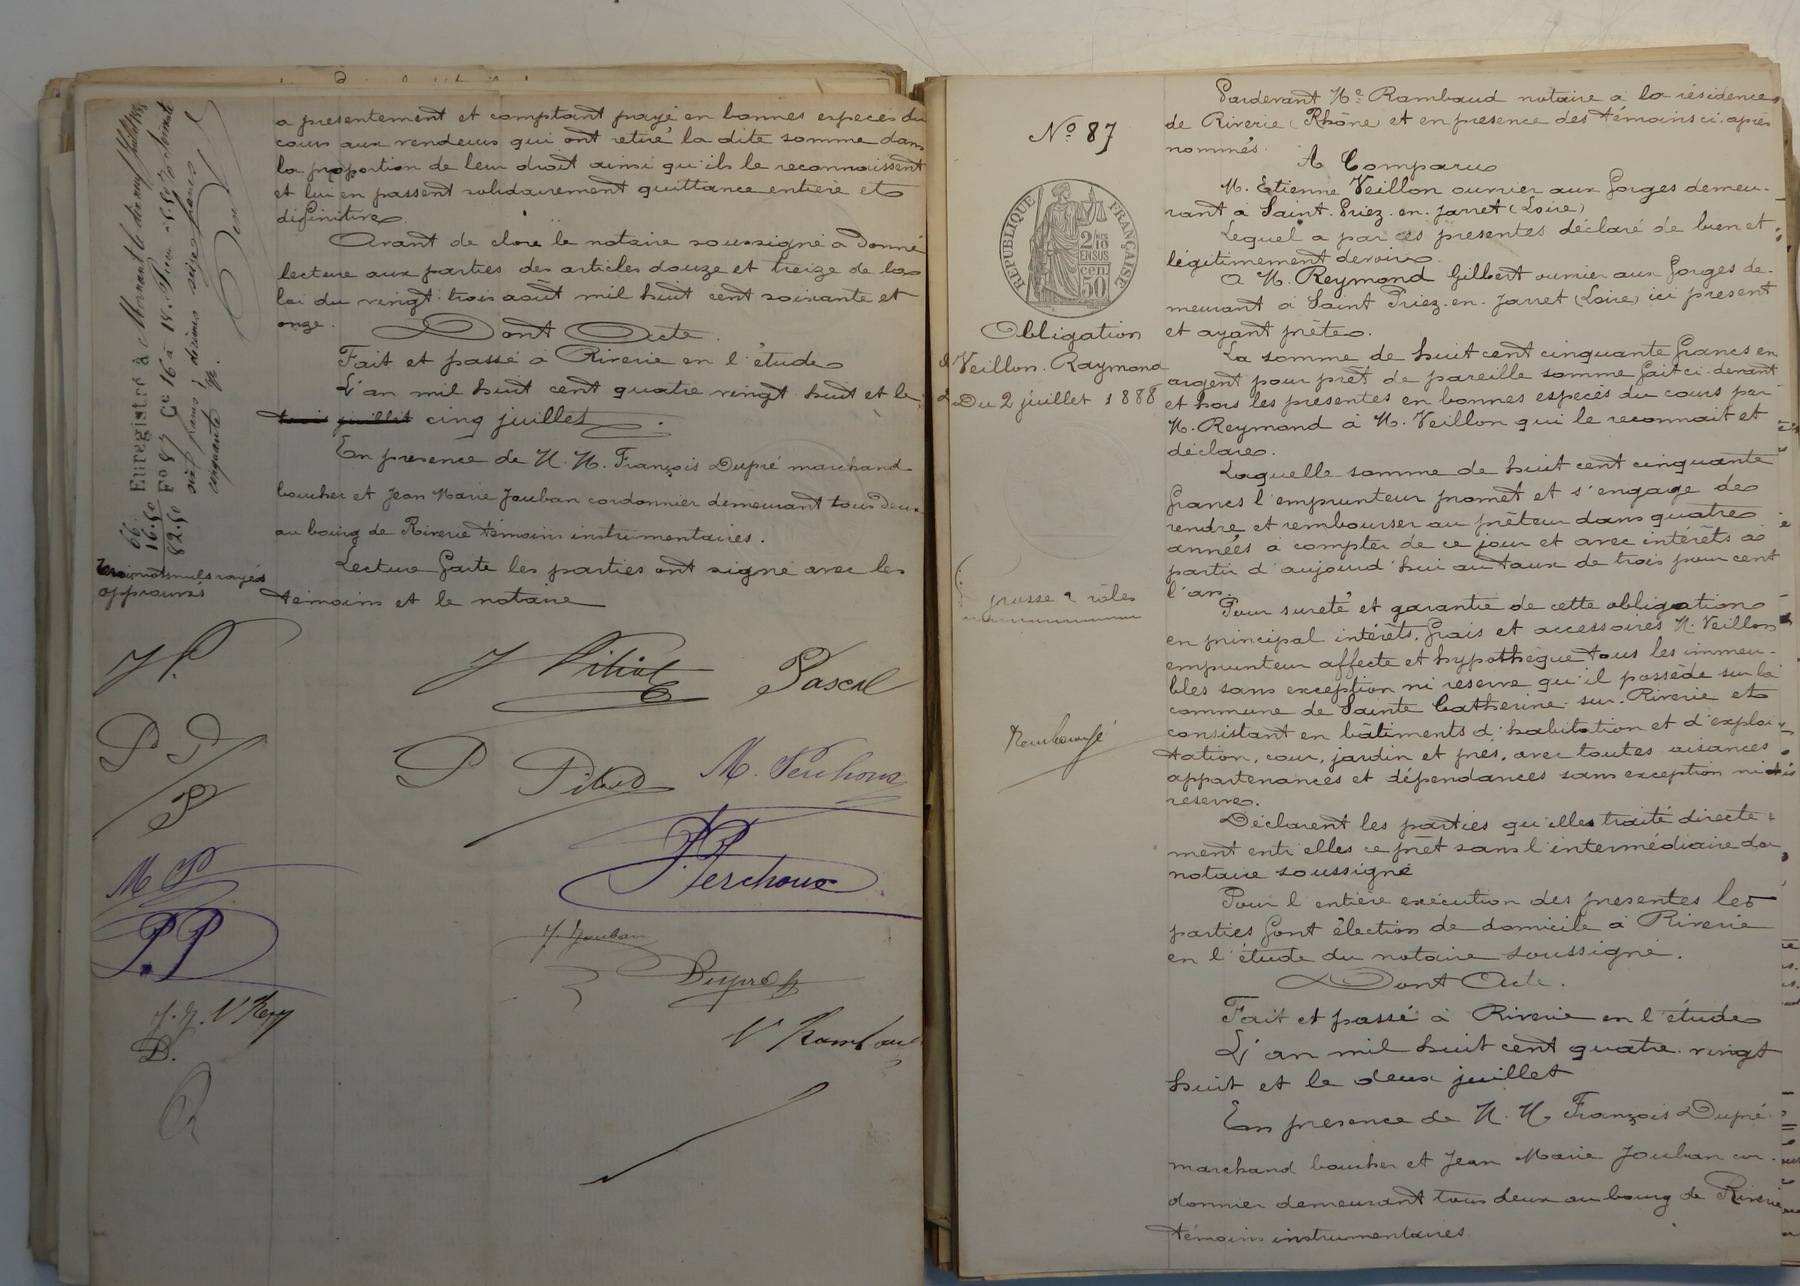 a presentement et comptant payé en bonnes especes du
cours aux vendeurs qui ont retiré la dite somme dans
la proportion de leur droit ainsi qu'ils le reconnaissent
et lui en passent solidairement quittance entiere et
définitive
Avant de clore le notaire soussigné a donné
lecture aux parties des articles douze et treize de la
loi du vingt trois août mil huit cent soixante et
onze.
Dont Acte.
Fait et passé à Riverie en l'étude
L'an mil huit cent quatre vingt huit et le
trois juillet cinq juillet
En presence de M. M. François Dupré marchand
boucher et Jean Marie Jouban cordonnier demeurant tous deux
au bourg de Riverie témoins instrumentaires.
Lecture faite les parties ont signé avec les
témoins et le notaire
Enregistré à Mornant le dix neuf juillet 1888
F° 87 C. 16 à 18.
cinquante
66.
16.50
82.50
mots nuls rayés
approuvés
J P.
Pascal
P
P P
P
M. Perchoux
M P
P. Perchoux
P. P
J. Jouban
Dupré
J. J. V Rey
D.
V Rambaud
N° 87
RÉPUBLIQUE FRANÇAISE
2/10
EN SUS
50 cen.
Obligation
Veillon. Raymond
Du 2 juillet 1888
grosse 2 rôles
Remboursé
Pardevant Me Rambaud notaire à la résidence
de Riverie (Rhône) et en presence des témoins ci-après
nommés.
A Comparu
M. Etienne Veillon ouvrier aux forges demeu-
rant à Saint. Priez. en. Jarret (Loire)
Lequel a par ces présentes déclaré de bien et
légitimement devoir
A M. Reymond Gilbert ouvrier aux forges de-
meurant à Saint Priez. en. Jarret (Loire) ici présent
et ayant prêté.
La somme de huit cent cinquante francs en
argent pour prêt de pareille somme fait ci-devant
et hors les présentes en bonnes espèces du cours par
M. Reymond à M. Veillon qui le reconnait et
déclare.
Laquelle somme de huit cent cinquante
francs l'emprunteur promet et s'engage de
rendre et rembourser au prêteur dans quatre
années à compter de ce jour et avec intérêts à
partir d'aujourd'hui au taux de trois pour cent
l'an.
Pour sureté et garantie de cette obligation
en principal intérêts, frais et accessoires M. Veillon
emprunteur affecte et hypothèque tous les immeu-
bles sans exception ni reserve qu'il possède sur la
commune de Sainte Catherine. sur. Riverie et
consistant en bâtiments d'habitation et d'exploi-
tation, cour, jardin et prés, avec toutes aisances
appartenances et dépendances sans exception ni
reserve.
Déclarent les parties qu'elles traité directe-
ment entr'elles ce prêt sans l'intermédiaire du
notaire soussigné
Pour l'entière exécution des presentes les
parties font élection de domicile à Riverie
en l'étude du notaire soussigné.
Dont Acte.
Fait et passé à Riverie en l'étude
L'an mil huit cent quatre. vingt
huit et le deux juillet
En presence de M. M. François Dupré
marchand boucher et Jean Marie Jouban cor-
donnier demeurant tous deux au bourg de Riverie
témoins instrumentaires